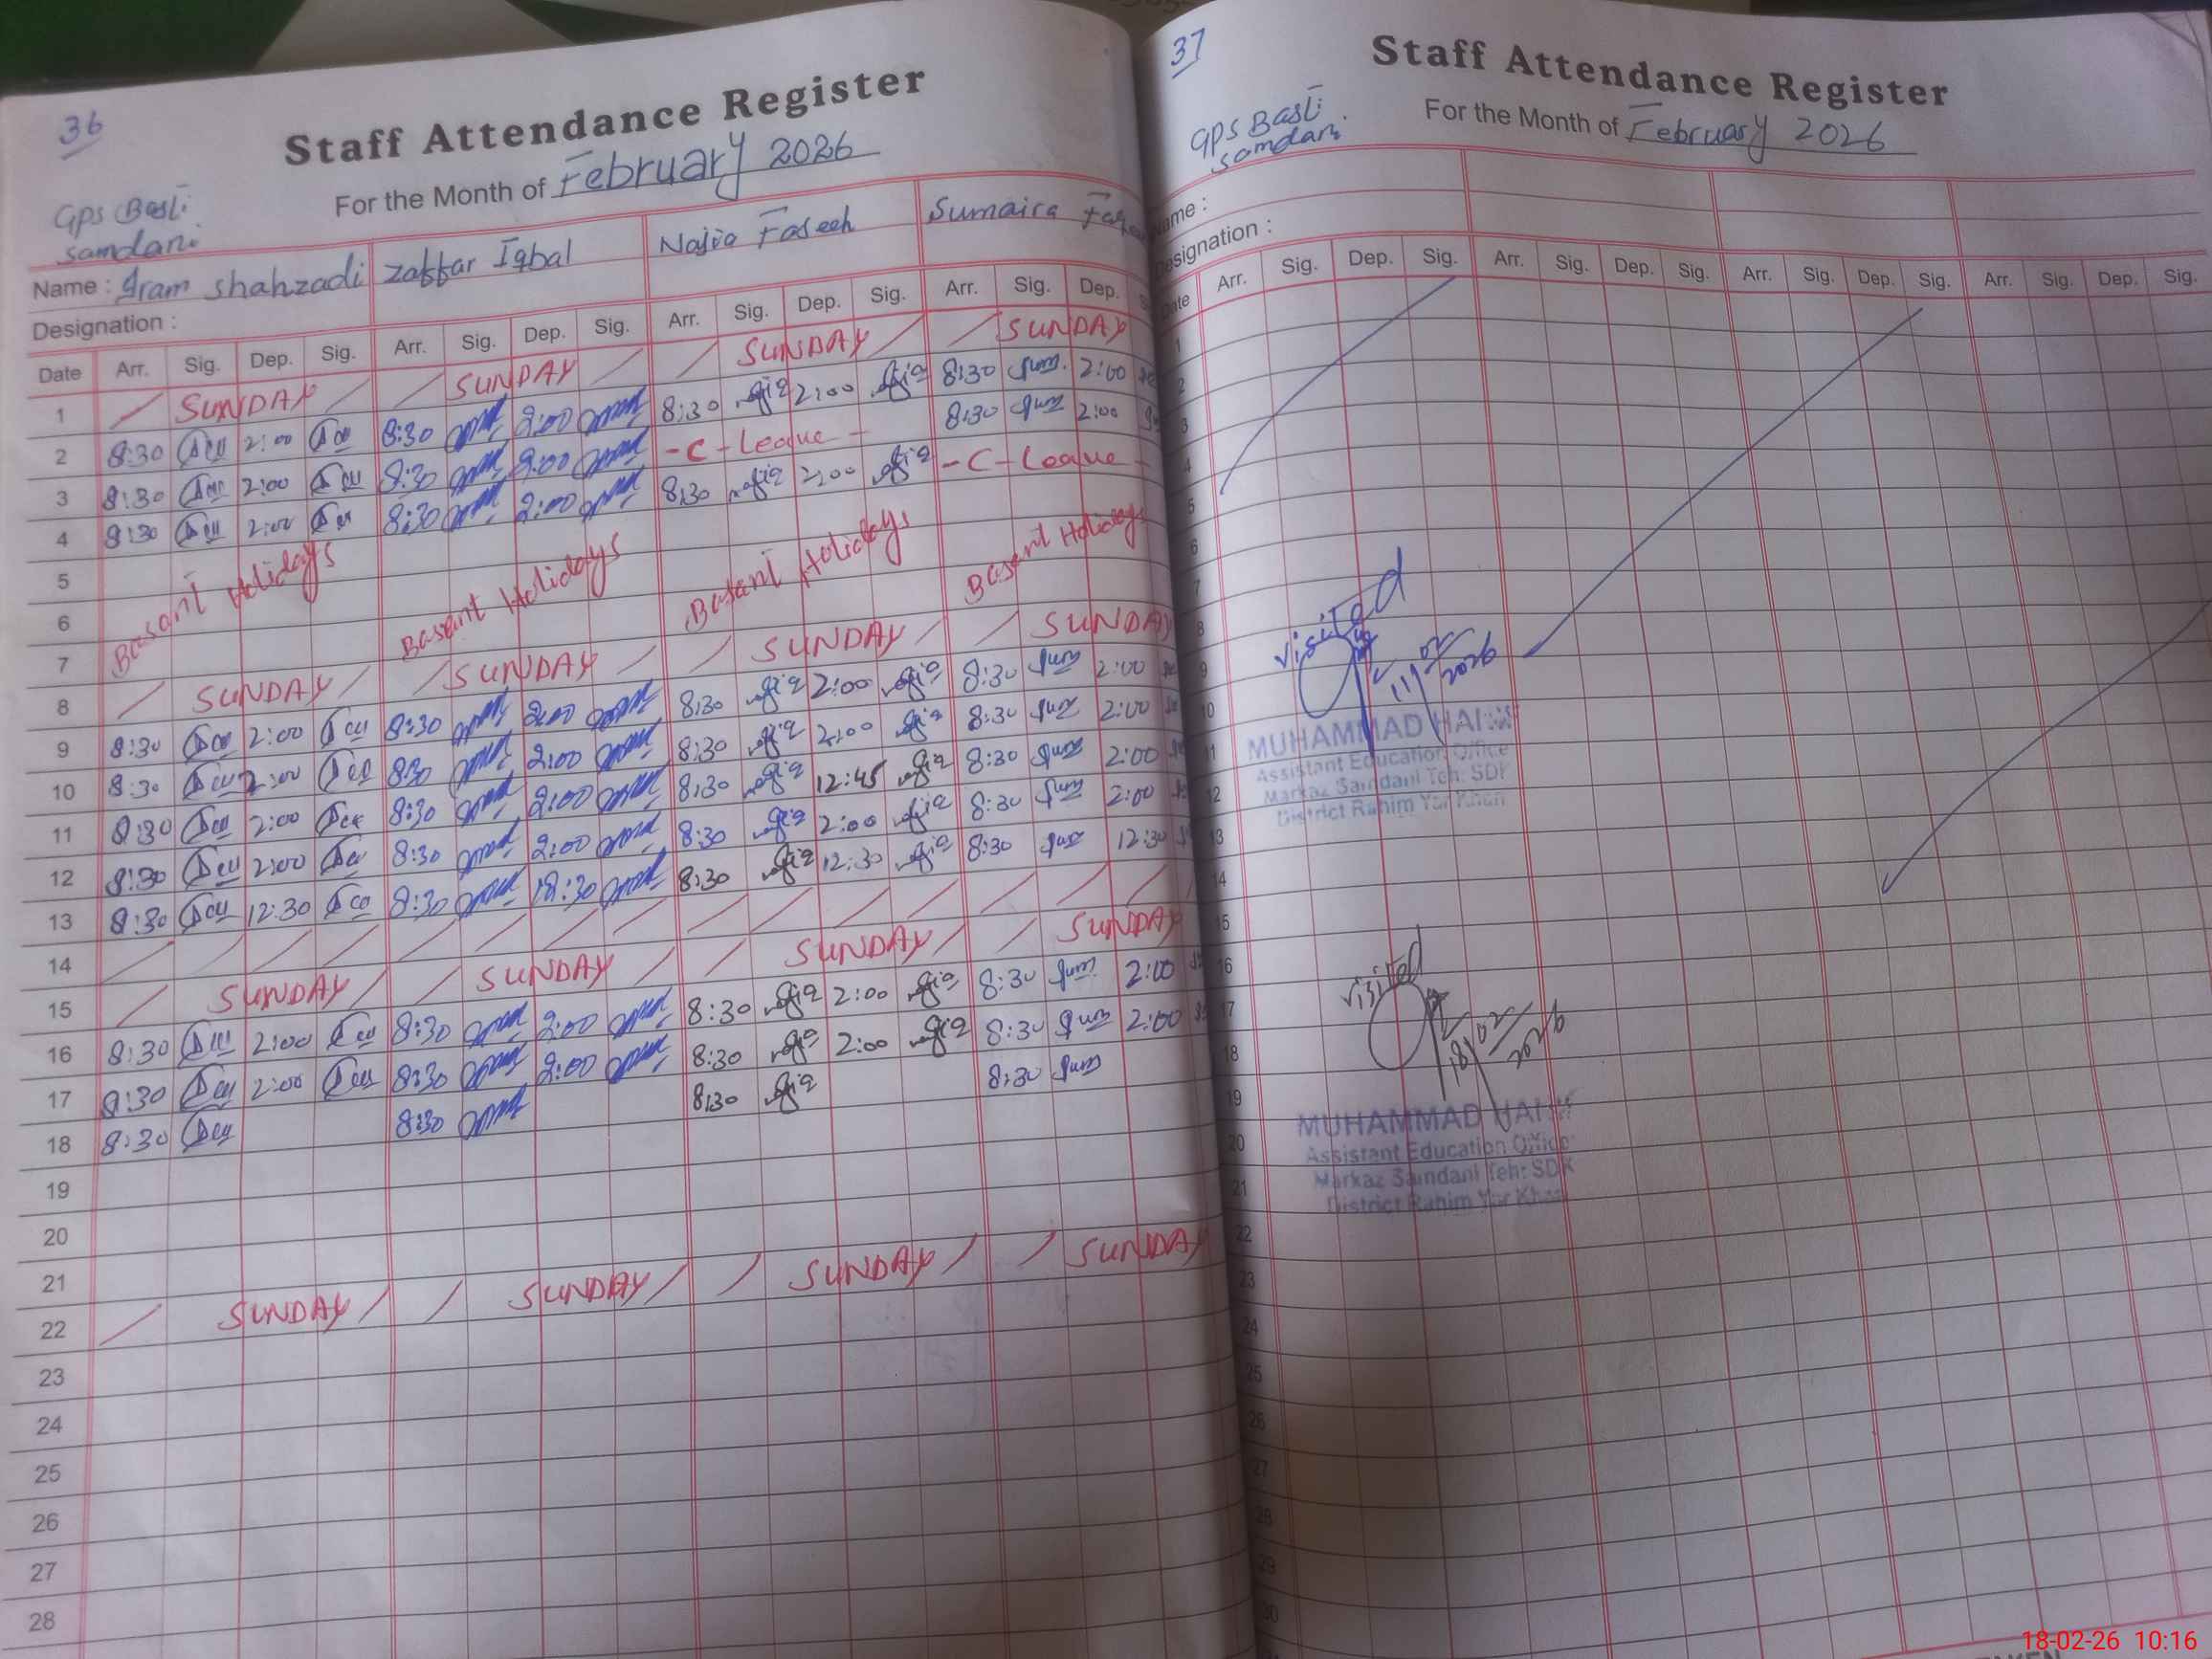 36
Staff Attendance Register
For the Month of February 2026
GPS Basti
Samdani
Name : Iram Shahzadi Zaffar Iqbal Najia Faseeh Sumaira
Designation :
Date Arr. Sig. Dep. Sig. Arr. Sig. Dep. Sig. Arr. Sig. Dep. Sig. Arr. Sig. Dep.
1 SUNDAY SUNDAY SUNDAY SUNDAY
2 8:30 2:00 8:30 2:00 8:30 2:00 8:30 2:00
3 8:30 2:00 8:30 2:00 - C - Leave - 8:30 2:00
4 8:30 2:00 8:30 2:00 8:30 2:00 - C - Leave -
5
6 Basant Holidays Basant Holidays Basant Holidays Basant Holidays
7
8 SUNDAY SUNDAY SUNDAY SUNDAY
9 8:30 2:00 8:30 2:00 8:30 2:00 8:30 2:00
10 8:30 2:00 8:30 2:00 8:30 2:00 8:30 2:00
11 8:30 2:00 8:30 2:00 8:30 12:45 8:30 2:00
12 8:30 2:00 8:30 2:00 8:30 2:00 8:30 2:00
13 8:30 12:30 8:30 12:30 8:30 12:30 8:30 12:30
14
15 SUNDAY SUNDAY SUNDAY SUNDAY
16 8:30 2:00 8:30 2:00 8:30 2:00 8:30 2:00
17 8:30 2:00 8:30 2:00 8:30 2:00 8:30 2:00
18 8:30 8:30 8:30 8:30
19
20
21
22 SUNDAY SUNDAY SUNDAY SUNDAY
23
24
25
26
27
28
37
Staff Attendance Register
For the Month of February 2026
GPS Basti
Samdani
Name :
Designation :
Date Arr. Sig. Dep. Sig. Arr. Sig. Dep. Sig. Arr. Sig. Dep. Sig. Arr. Sig. Dep. Sig.
1
2
3
4
5
6
7
8
9
10
11
12
13
14
15
16
17
18
19
20
21
22
23
24
25
26
27
28
29
30
visited
11/02/2026
MUHAMMAD
Assistant Education Office
Markaz Samdani Teh: SDK
District Rahim Yar Khan
visited
18/02/2026
MUHAMMAD
Assistant Education Office
Markaz Samdani Teh: SDK
District Rahim Yar Khan
18-02-26 10:16